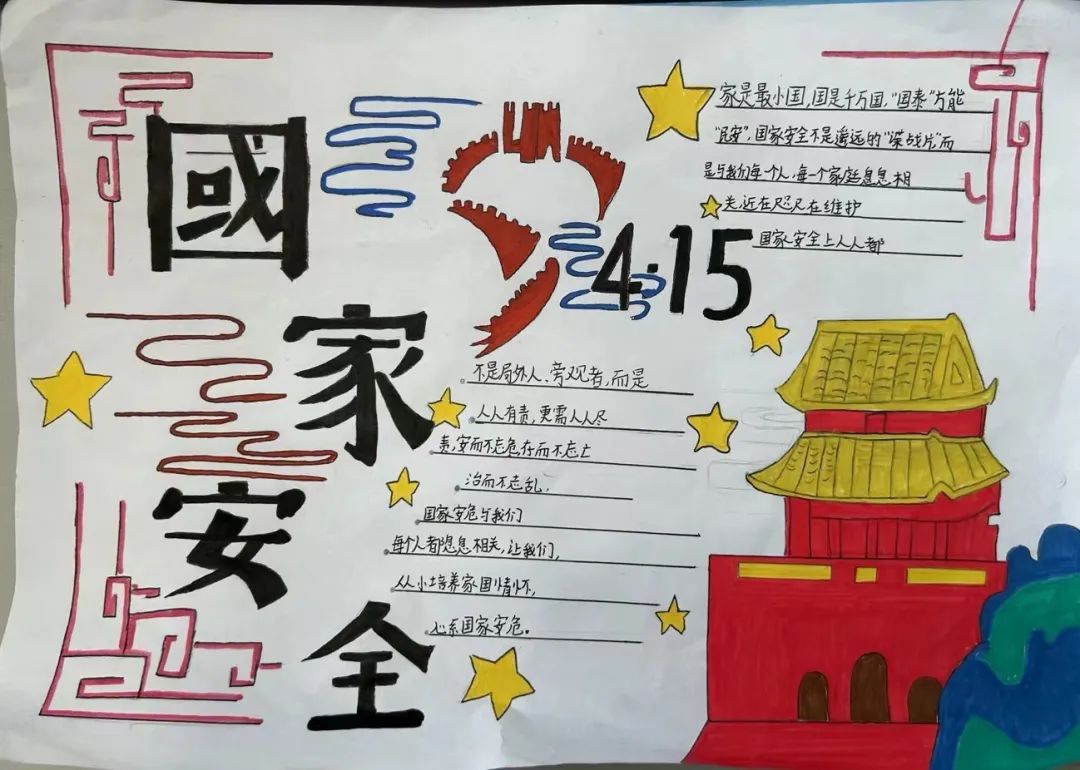 國
家
安
全
4·15
家是最小国,国是千万国,"国泰"方能
"民安",国家安全不是遥远的"谍战片"而
是与我们每个人,每一个家庭息息相
关,近在咫尺在维护
国家安全上人人都
不是局外人、旁观者,而是
人人有责,更需人人尽
责,安而不忘危存而不忘亡
治而不忘乱,
国家安危与我们
每个人都息息相关,让我们,
从小培养家国情怀,
心系国家安危。